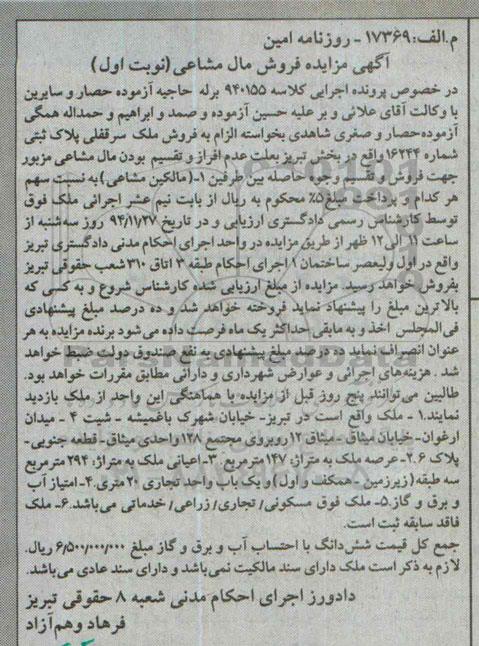 م.الف:۱۷۳۶۹ - روزنامه امین
آگهی مزایده فروش مال مشاعی (نوبت اول)
در خصوص پرونده اجرایی کلاسه ۹۴۰۱۵۵ برله حاجیه آزموده حصار و سایرین
با وکالت آقای علائی و بر علیه حسین آزموده و صمد و ابراهیم و حمداله همگی
آزموده‌حصار و صغری شاهدی بخواسته الزام به فروش ملک سرقفلی پلاک ثبتی
شماره ۱۶۲۴۴ واقع در بخش تبریز بعلت عدم افراز و تقسیم بودن مال مشاعی مزبور
جهت فروش و تقسیم وجوه حاصله بین طرفین ۱- (مالکین مشاعی) به نسبت سهم
هر کدام و پرداخت مبلغ ۵٪ محکوم به ریال از بابت نیم عشر اجرائی ملک فوق
توسط کارشناس رسمی دادگستری ارزیابی و در تاریخ ۹۴/۱۱/۲۷ روز سه شنبه از
ساعت ۱۱ الی ۱۲ ظهر از طریق مزایده در واحد اجرای احکام مدنی دادگستری تبریز
واقع در اول ولیعصر ساختمان ۱ اجرای احکام طبقه ۳ اتاق ۳۱۰ شعب حقوقی تبریز
بفروش خواهد رسید. مزایده از مبلغ ارزیابی شده کارشناس شروع و به کسی که
بالاترین مبلغ را پیشنهاد نماید فروخته خواهد شد و ده درصد مبلغ پیشنهادی
فی‌المجلس اخذ و به مابقی حداکثر یک ماه فرصت داده می‌شود برنده مزایده به هر
عنوان انصراف نماید ده درصد مبلغ پیشنهادی به نفع صندوق دولت ضبط خواهد
شد . هزینه‌های اجرائی و عوارض شهرداری و دارائی مطابق مقررات خواهد بود.
طالبین می‌توانند پنج روز قبل از مزایده با هماهنگی این واحد از ملک بازدید
نمایند.۱ - ملک واقع است در تبریز- خیابان شهرک باغمیشه - شیت ۴ - میدان
ارغوان- خیابان میثاق - میثاق ۱۲ روبروی مجتمع ۱۲۸ واحدی میثاق- قطعه جنوبی-
پلاک ۲.۶- عرصه ملک به متراژ: ۱۴۷ مترمربع .۳- اعیانی ملک به متراژ: ۲۹۴ مترمربع
سه طبقه (زیرزمین - همکف و اول) و یک باب واحد تجاری ۲۰ متری.۴- امتیاز آب
و برق و گاز.۵- ملک فوق مسکونی/ تجاری/ زراعی/ خدماتی می‌باشد.۶- ملک
فاقد سابقه ثبت است.
جمع کل قیمت شش‌دانگ با احتساب آب و برق و گاز مبلغ ۶/۵۰۰/۰۰۰/۰۰۰ ریال.
لازم به ذکر است ملک دارای سند مالکیت نمی‌باشد و دارای سند عادی می‌باشد.
دادورز اجرای احکام مدنی شعبه ۸ حقوقی تبریز
فرهاد وهم‌آزاد